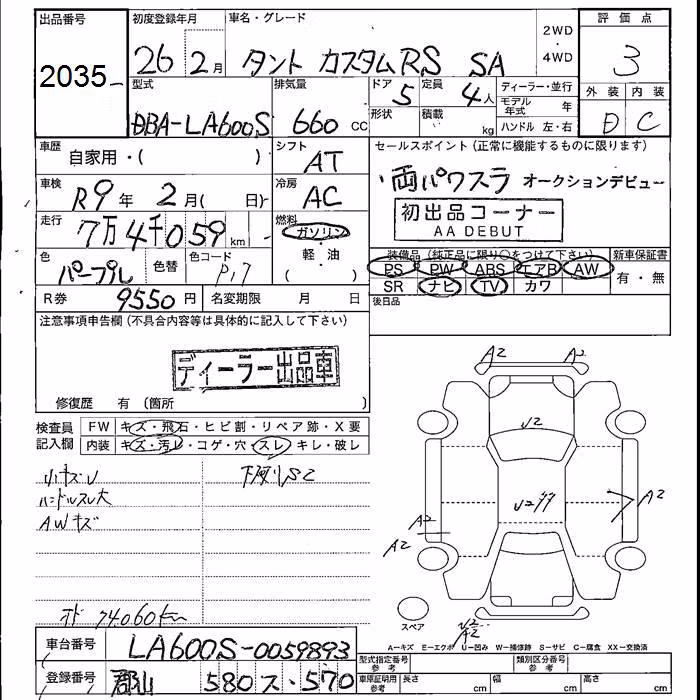 出品番号 初度登録年月 車名・グレード 2WD・4WD 評価点
2035 26年2月 タント カスタムRS SA 3
型式 排気量 ドア 定員 ディーラー・並行 外装 内装
DBA-LA600S 660 CC 5 4人 モデル年式 年 D C
形状 積載 kg ハンドル 左・右
車歴 自家用・( ) シフト AT セールスポイント(正常に機能するものに限ります)
車検 R9年 2月( 日) 冷房 AC ・両パワスラ オークションデビュー
初出品コーナー
AA DEBUT
走行 7万4千059km 燃料 ガソリン
軽・油
( )
色 パープル 色替 色コード P17
装備品(純正品に限り○をつけて下さい) 新車保証書
PS PW ABS エアB AW 有・無
SR ナビ TV カワ
R券 9550円 名変期限 月 日 後日品
注意事項申告欄(不具合内容等は具体的に記入して下さい)
ディーラー出品車
修復歴 有(箇所 )
検査員記入欄 FW キズ・飛石・ヒビ割・リペア跡・X要
内装 キズ・汚レ・コゲ・穴・スレ・キレ・破レ
小キズU 下廻りS2
ハンドルスレ大
AWキズ
オド 74060km
A2 A2
U2
U2
A2
A2
A2
U2
A2
スペア
A―キズ E―エクボ U―凹み W―補修跡 S―サビ C―腐食 XX―交換済
車台番号 LA600S-0059893
型式指定番号 参考 類別区分番号 参考
登録番号 郡山 580 ス・570
車庫証明用 参考 長さ cm 幅 cm 高さ cm